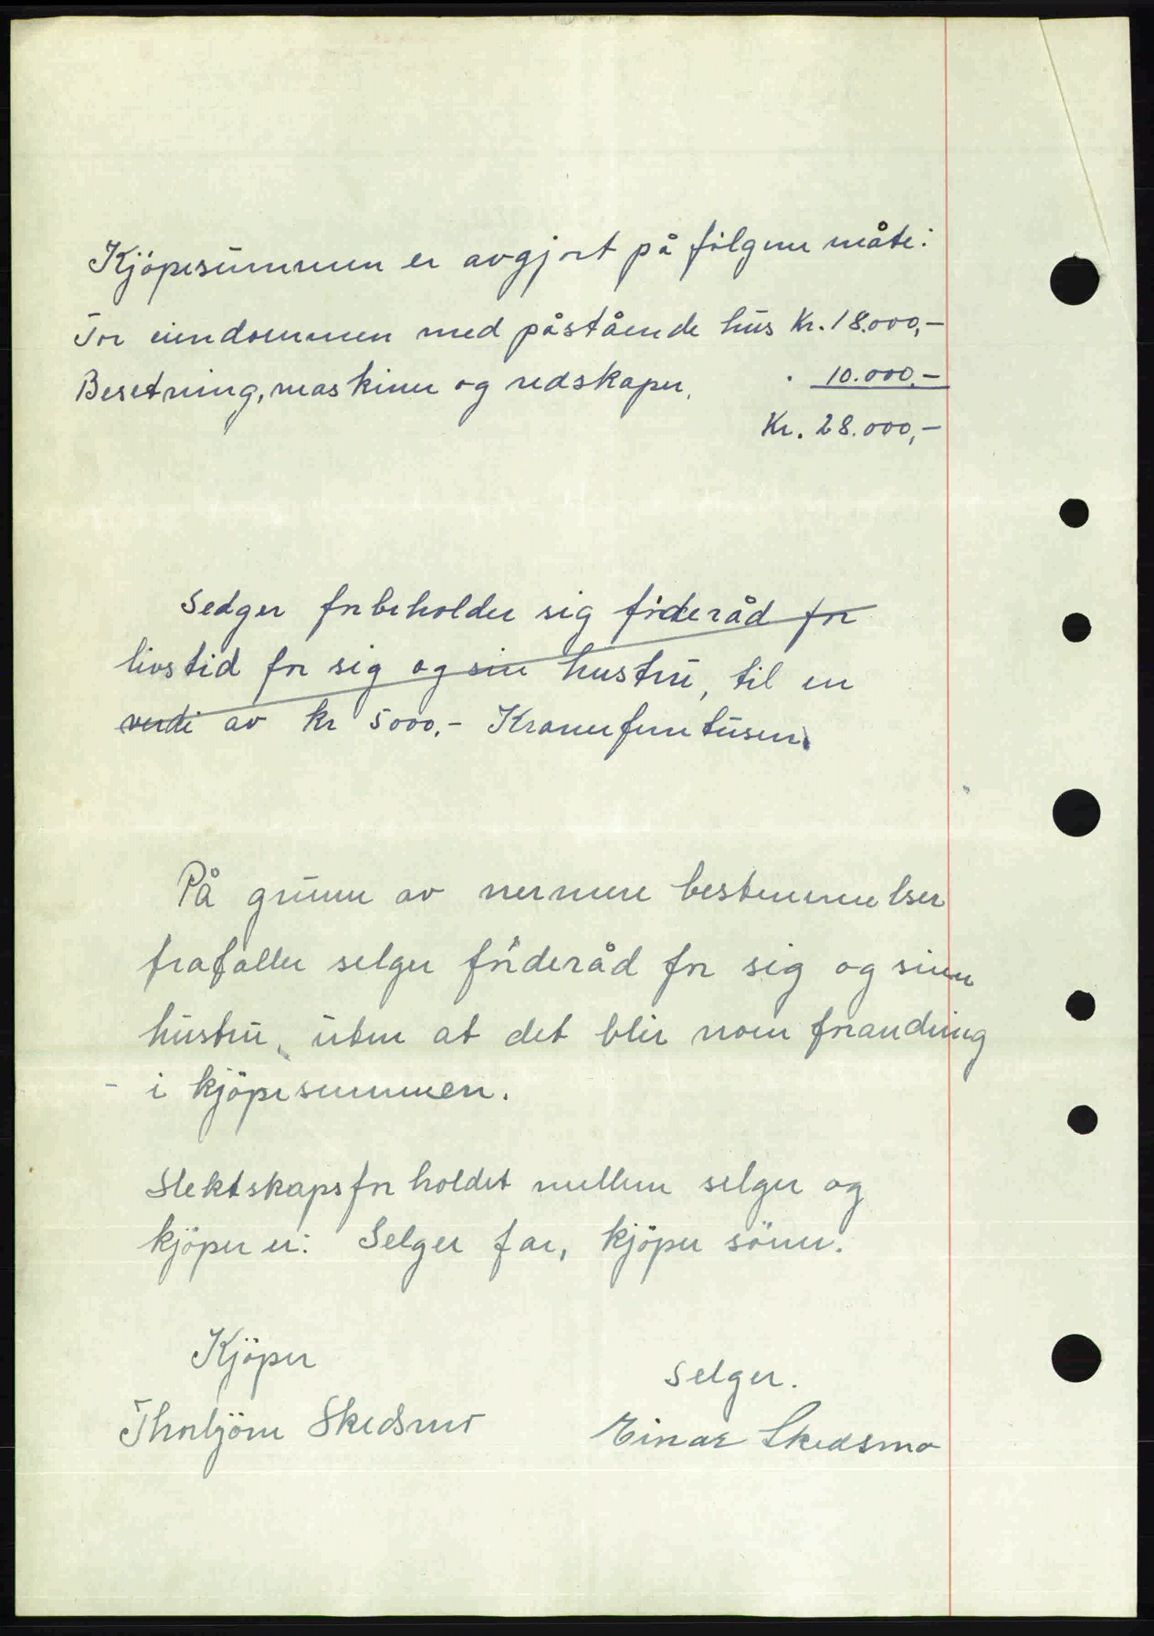 Kjöpesummen er avgjort på følgene måte:
For eiendommen med påstående hus Kr. 18.000,-
Besetning, maskiner og redskaper. " 10.000,-
Kr. 28.000,-
Selger forbeholder sig föderåd for
livstid for sig og sin hustru, til en
verdi av kr 5000,- Kroner fem tusen.
På grunn av nermere bestemmelser
frafaller selger föderåd for sig og sinn
hustru, uten at det blir noen forandring
i kjöpesummen.
Slektskapsforholdet mellem selger og
kjöper er: Selger far, kjöper sönn.
Kjöper
Selger.
Thorbjörn Skedsmo
Einar Skedsmo